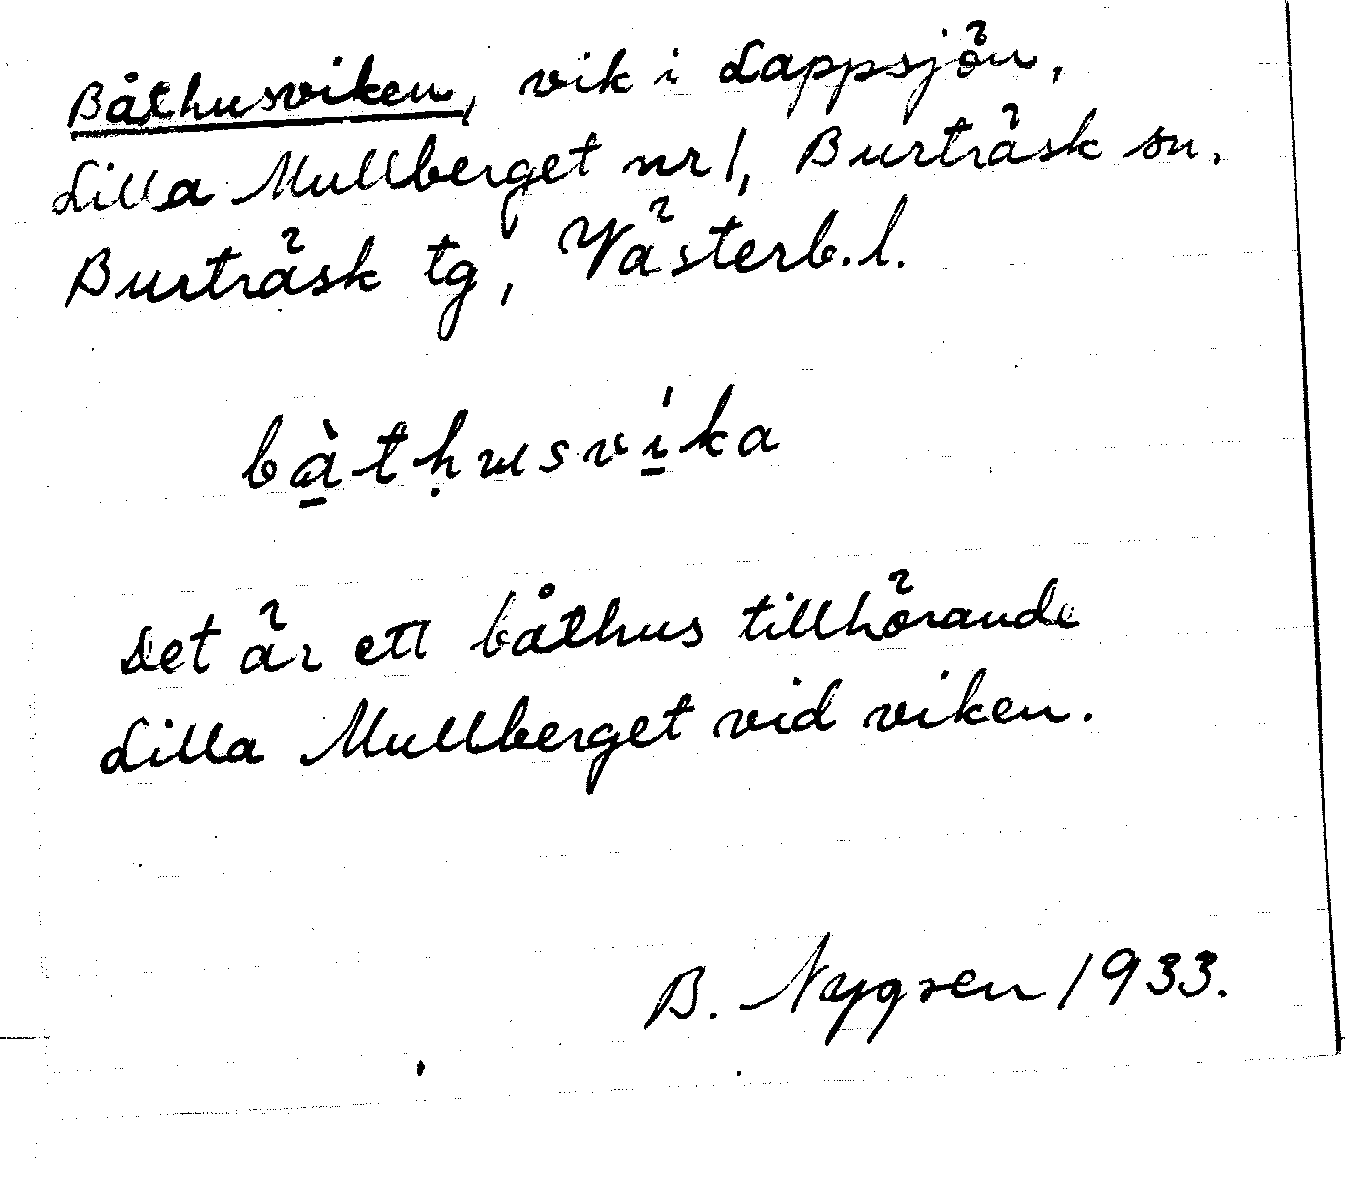 Båthusviken, vik i Lappsjön,
Lilla Mullberget nr 1, Burträsk sn.
Burträsk tg, Västerb.l.
bà̱tḥusví̱ka
Det är ett båthus tillhörande
Lilla Mullberget vid viken.
B. Nygren 1933.